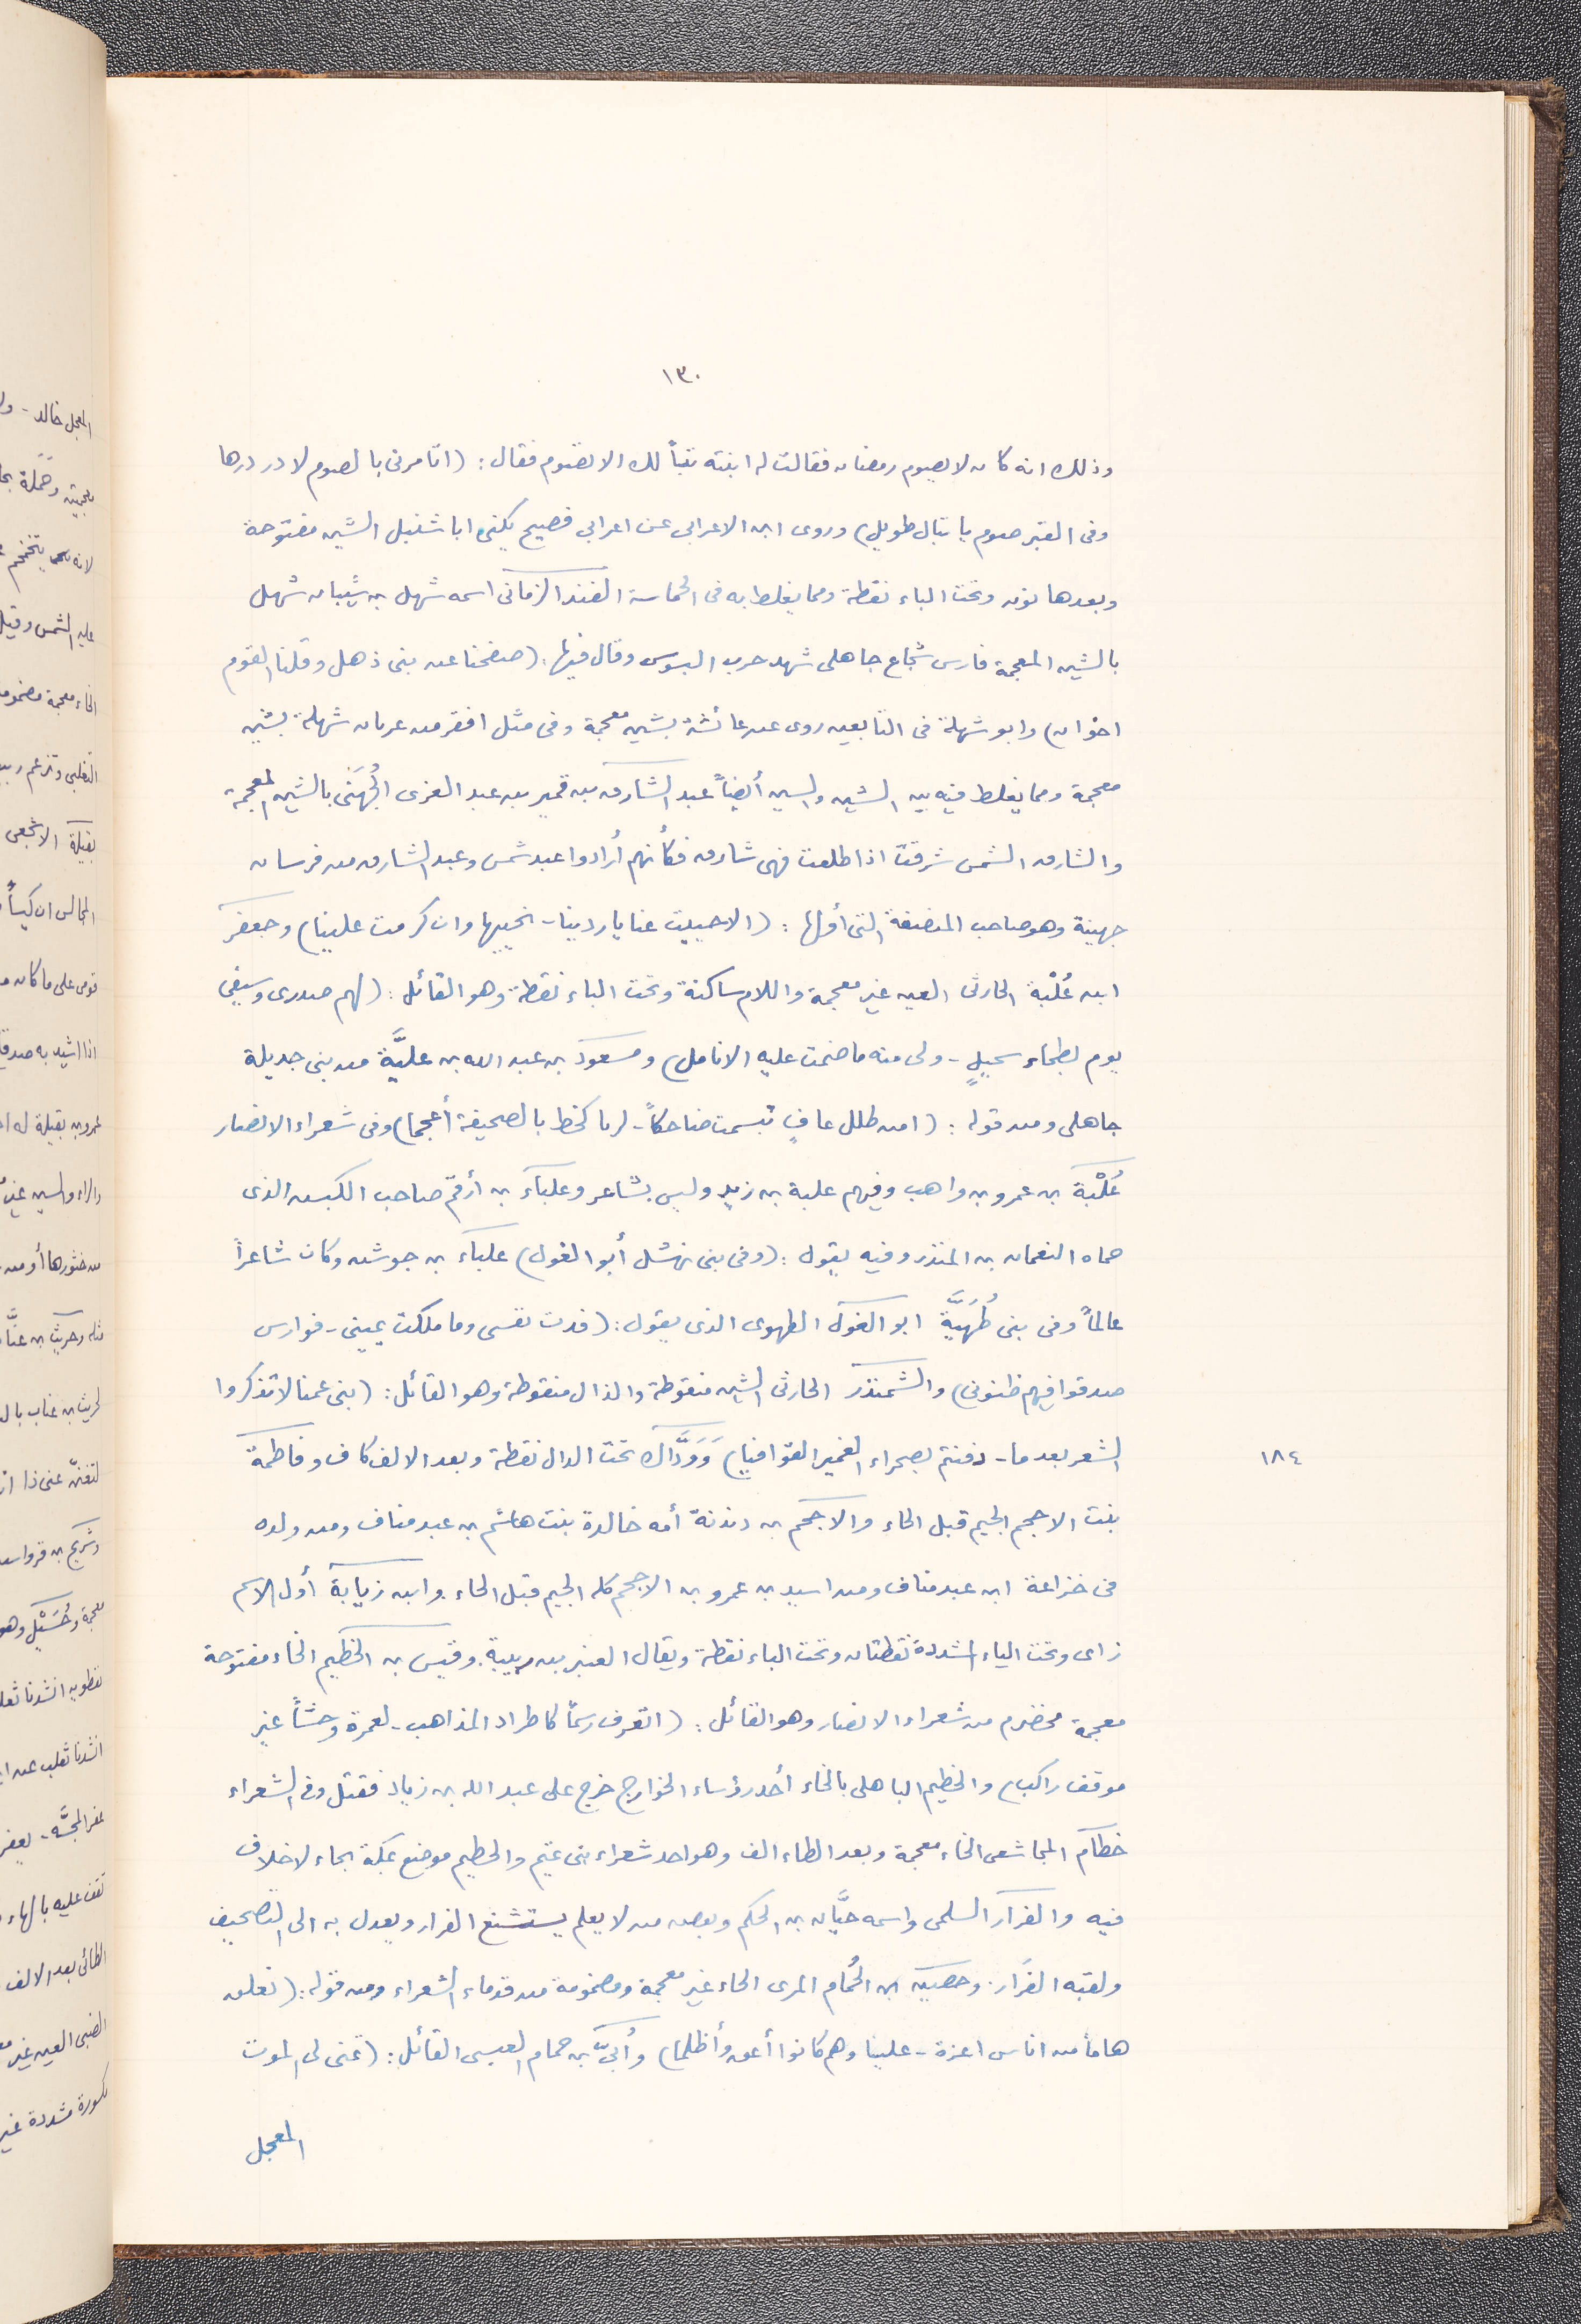 ١٣٠
وذلك انه كان لا يصوم رمضان فقالت له ابنته تباً لك الا تصوم فقال : (اتأمرنى بالصوم لا در درها
وفى القبر صوم يا تبال طويل) وروى ابن الاعرابى عن اعرابى فصيح يكنى ابا شنبل الشين مفتوحة
وبعدها نون وتحت الباء نقطة ومما يغلط به فى الحماسة الفند الزمانى اسمه شهل بن شيبان شهل
بالشين المعجمة فارس شجاع جاهلى شهد حرب البسوس وقال فيها : (صفحنا عن بنى ذهل وقلنا القوم
اخوان) وابو شهلة فى التابعين روى عن عائشة بشين معجمة وفى مثل افقر من عريان شهلة بشين
معجمة ومما يغلط فيه بين الشين والسين أيضاً عبد الشارق بن قمير بن عبد العزى الجُهَنَى بالشين المعجمة
والشارق الشمس شرقت اذا طلعت فهى شارق فكأنهم أرادوا عبد شمس وعبد الشارق من فرسان
جهينة وهو صاحب المنصفة التى أولها : (الا حييت عنا يا ردينا - نحييها وان كرمت علينا) وجعفر
ابن عُلْبة الحارثى العين غير معجمة واللام ساكنة وتحت الباء نقطة وهو القائل : (لهم صدرى وسيفى
يوم بطحاء سحبلٍ - ولى منه ما ضمت عليه الانامل) ومسعود بن عبد الله بن عليَّة من بنى جديلة
جاهلى ومن قوله : (امن طلل عافٍ تبسمت ضاحكاً - لربا كخط بالصحيفة أعجما) وفى شعراء الانصار
عُلْبَة بن عمرو بن واهب وفيهم علبة بن زيد وليس بشاعر وعلباء بن أرقم صاحب الكبش الذى
حماه النعمان بن المنذر وفيه يقول : (وفى بنى نهشل أبو الغول) علباء بن جوشن وكان شاعراً
عالماً وفى بنى طُهَيَّة ابو الغول الطهوى الذى يقول : (فدت نفسى وما ملكت يمينى - فوارس
صدقوا فيهم ظنونى) والشمنذر الحارثى الشين منقوطة والذال منقوطة وهو القائل : (بنى عمنا لا تذكروا
الشعر بعد ما - دفنتم بصحراء الغمير القوافيا) وَوَدَّاك تحت الدال نقطة وبعد الالف كاف وفاطمة
١٨٤
بنت الاجحم الجيم قبل الحاء والاجحم بن دندنة أمه خالدة بنت هاشم بن عبد مناف ومن ولده
فى خزاعة ابن عبد مناف ومن اسيد بن عمرو بن الاجحم كله الجيم قبل الحاء . وابن زيابة أول الاسم
زاى وتحت الياء المشددة نقطتان وتحت الباء نقطة ويقال العنبر بن ربيبة . وقيس بن الخطيم الخاء مفتوحة
معجمة مخضرم من شعراء الانصار وهو القائل : (اتعرف رسماً كاطراد المذاهب - لعمرة وحشاً غير
موقف راكب) والخطيم الباهلى بالخاء أحد رؤساء الخوارج خرج على عبد الله بن زياد فقتل وفى الشعراء
خطام المجاشعى الخاء معجمة وبعد الطاء الف وهو احد شعراء بنى تميم والحطيم موضع بمكة بحاء لا خلاف
فيه والفرار السلمى واسمه حيَّان بن الحكم وبعض من لا يعلم يستشنع الفرار ويعدل به الى التصحيف
ولقبه الفرَّار . وحصين بن الحُمام المرى الحاء غير معجمة ومضمومة من قدماء الشعراء ومن قوله : (نفلق
هاماً من اناس اعزة - علينا وهم كانوا أعق وأظلما) وأُبىّ بن حمام العبسى القائل : (تمنى لى الموت
المعجل